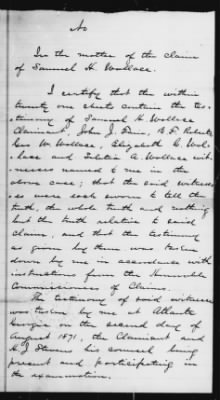 No
In the matter of the claim
of Samuel H. Wallace.
I certify that the within
twenty one sheets contain the tes-
timony of Samuel H. Wallace
Claimant, John J.
Geo W. Wallace, Elizabeth C. Wal-
lace and A. Wallace wit-
nesses named to me in the
above case; that the said witness-
es were each sworn to tell the
truth, the whole truth and nothing
but the truth relative to said
claim, and that the testimony
as given by them was taken
down by me in accordance with
instructions from the Honorable
Commissioners of Claims.
The testimony of said witnesses
was taken by me at Atlanta
Georgia on the second day of
August 1871, the Claimant and
Stevens his counsel being
present and participating in
the examination.